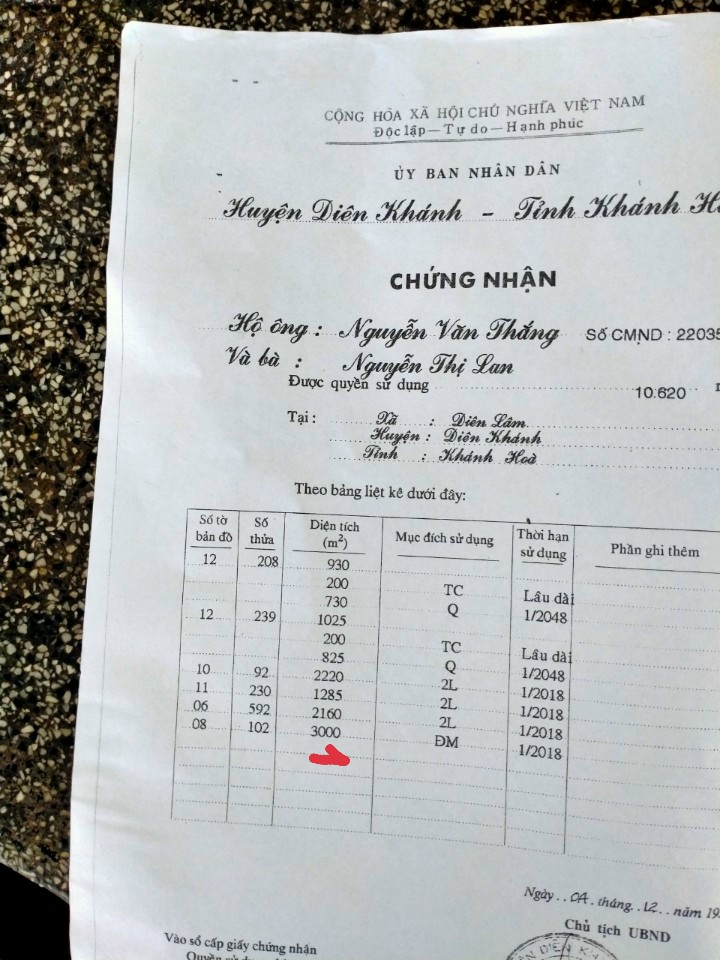 CỘNG HÒA XÃ HỘI CHỦ NGHĨA VIỆT NAM
Độc lập — Tự do — Hạnh phúc
ỦY BAN NHÂN DÂN
Huyện Diên Khánh - Tỉnh Khánh
CHỨNG NHẬN
Hộ ông : Nguyễn Văn Thắng Số CMND : 22035
Và bà : Nguyễn Thị Lan
Được quyền sử dụng 10.620
Tại : Xã : Diên Lâm
Huyện : Diên Khánh
Tỉnh : Khánh Hoà
Theo bảng liệt kê dưới đây:
Số tờ bản đồ Số thửa Diện tích (m²) Mục đích sử dụng Thời hạn sử dụng Phần ghi thêm
12 208 930
200 TC Lâu dài
730 Q 1/2048
12 239 1025
200 TC Lâu dài
825 Q 1/2048
10 92 2220 2L 1/2018
11 230 1285 2L 1/2018
06 592 2160 2L 1/2018
08 102 3000 ĐM 1/2018
Ngày 04 tháng 12 năm 19
Chủ tịch UBND
Vào sổ cấp giấy chứng nhận